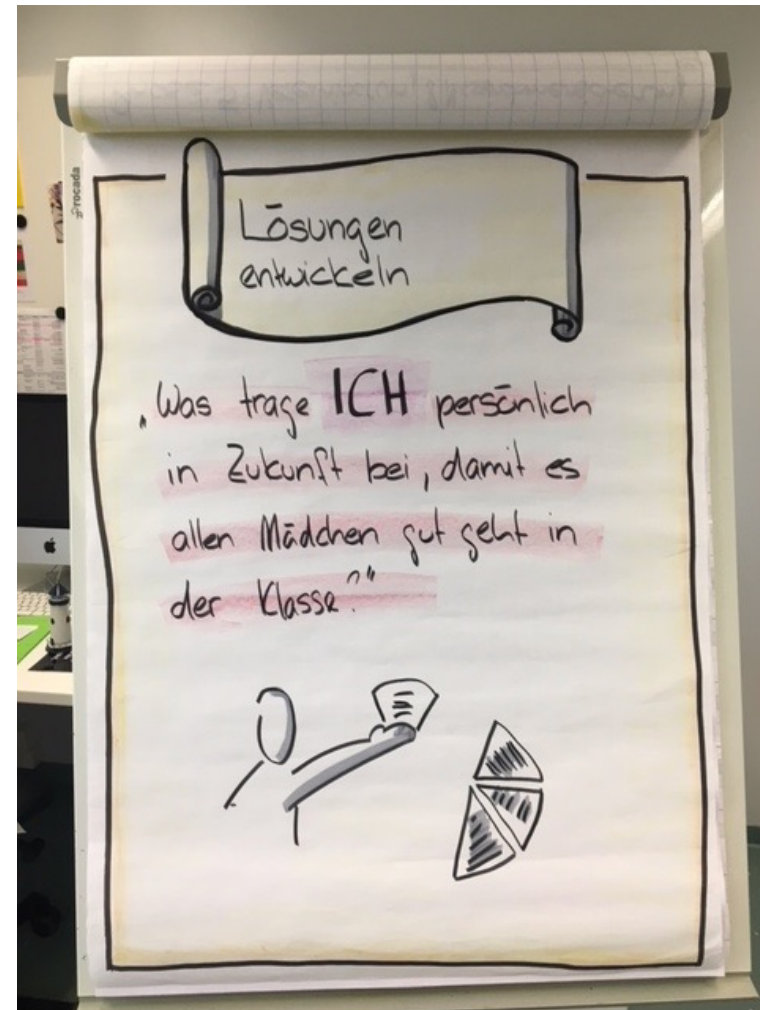 rocada
Lösungen
entwickeln
„Was trage ICH persönlich
in Zukunft bei, damit es
allen Mädchen gut geht in
der Klasse?"